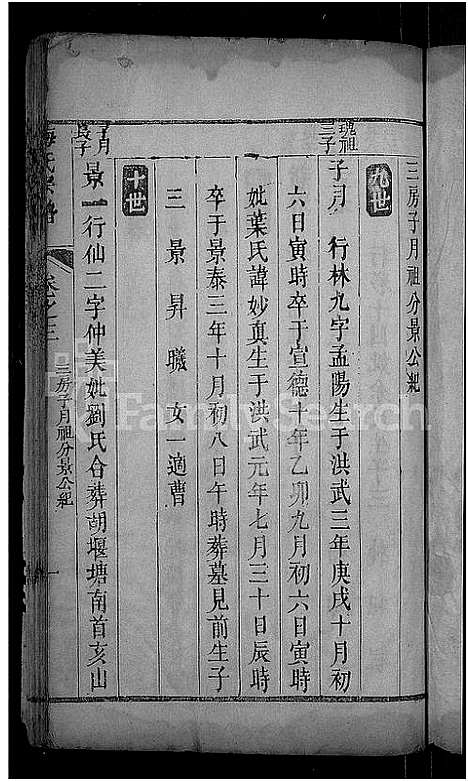 三房子月祖分景公紀
九世
瑰祖
三子
子月　行林九字孟陽生于洪武三年庚戌十月初
六日寅時卒于宣德十年乙卯九月初六日寅時
妣葉氏諱妙眞生于洪武元年七月三十日辰時
卒于景泰三年十月初八日午時葬墓見前生子
三　景　昇　曦　女一適曹
十世
子月
長子
景一行仙二字仲美妣劉氏合葬胡堰塘南首亥山
氏宗譜
卷之三
三房子月祖分景公紀
一
FamilySearch